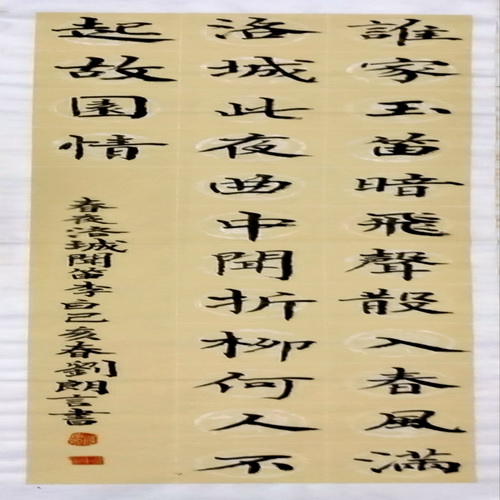 誰家玉笛暗飛聲散入春風滿
洛城此夜曲中聞折柳何人不
起故園情
春夜洛城聞笛李白己亥春劉朗言書